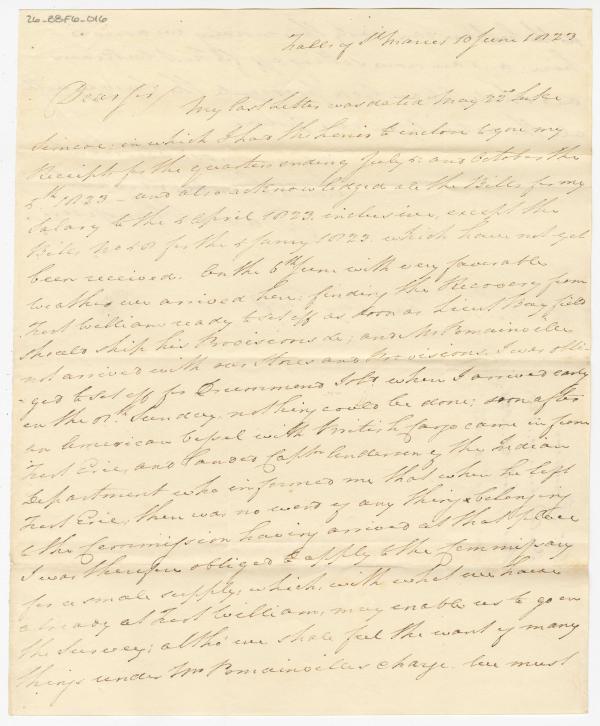 26-88F6-016
Falls of St Maries 10 June 1823
Dear Sir/
My last Letter was dated May 22d Lake
Simcoe: in which I had the honor to inclose to you my
Receipts for the quarters ending July 5 and October the
5th 1823 – and also acknowledged all the Bills for my
Salary to the 5 April 1823, inclusive, except the
Bills No 68 for the 5 Janry 1823. which have not yet
been received. On the 6th June with very favorable
weather we arrived here: finding the Recovery from
Fort William ready to set off as soon as Lieut Bayfield
should ship his Provisions &c; and Mr Pomainville
not arrived with our Stores and Provisions. I was obli-
-ged to set off for Drummond Isld when I arrived early
on the 8th Sunday. nothing could be done; soon after
an American vessel with British Cargo came in from
Fort Erie, and landed Captn Anderson of the Indian
Department who informed me that when he left
Fort Erie, there was no word of any thing belonging
to the Commission having arrived at that place
I was therefore obliged to apply to the Commissary
for a small supply; which, with what we have
already at Fort William, may enable us to go on
the Survey; altho' we shall feel the want of many
things under Mr Pomainvilles charge. We must